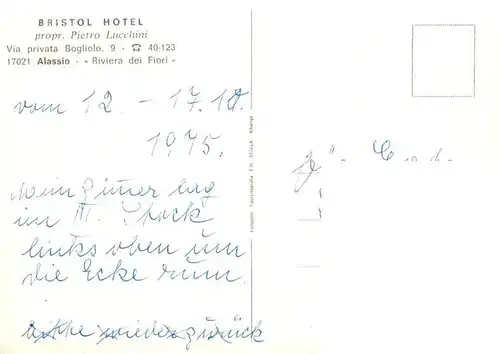 BRISTOL HOTEL
propr. Pietro Lucchini
Via privata Bogliolo, 9 - ☎ 40-123
17021 Alassio - « Riviera dei Fiori »
vom 12. - 17.10.
1975.
Mein Zimer lag
im III. Stock
links oben um
die Ecke rum.
bitte wieder zurück